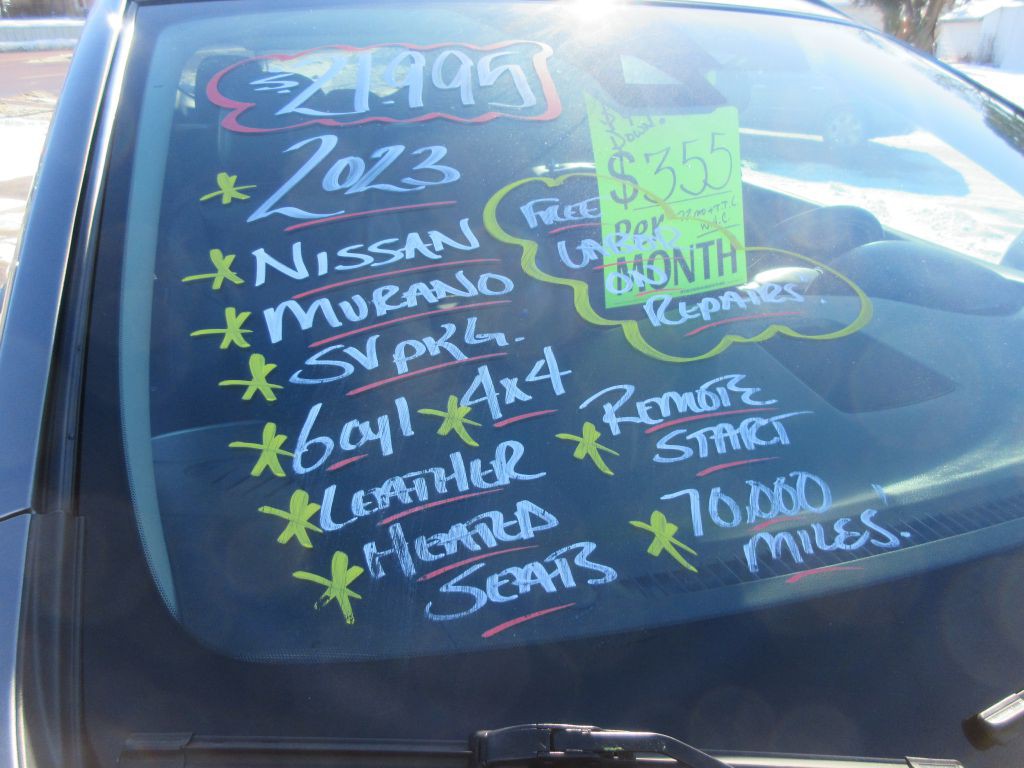 $21,995
2023
NISSAN
MURANO
SV PKG.
6 cyl 4x4
LEATHER
HEATED
SEATS
DOWN.
$355
PER
72 MO + T.T.L
W.A.C
MONTH
FREE
LABOR
ON
REPAIRS.
REMOTE
START
70,000
MILES.